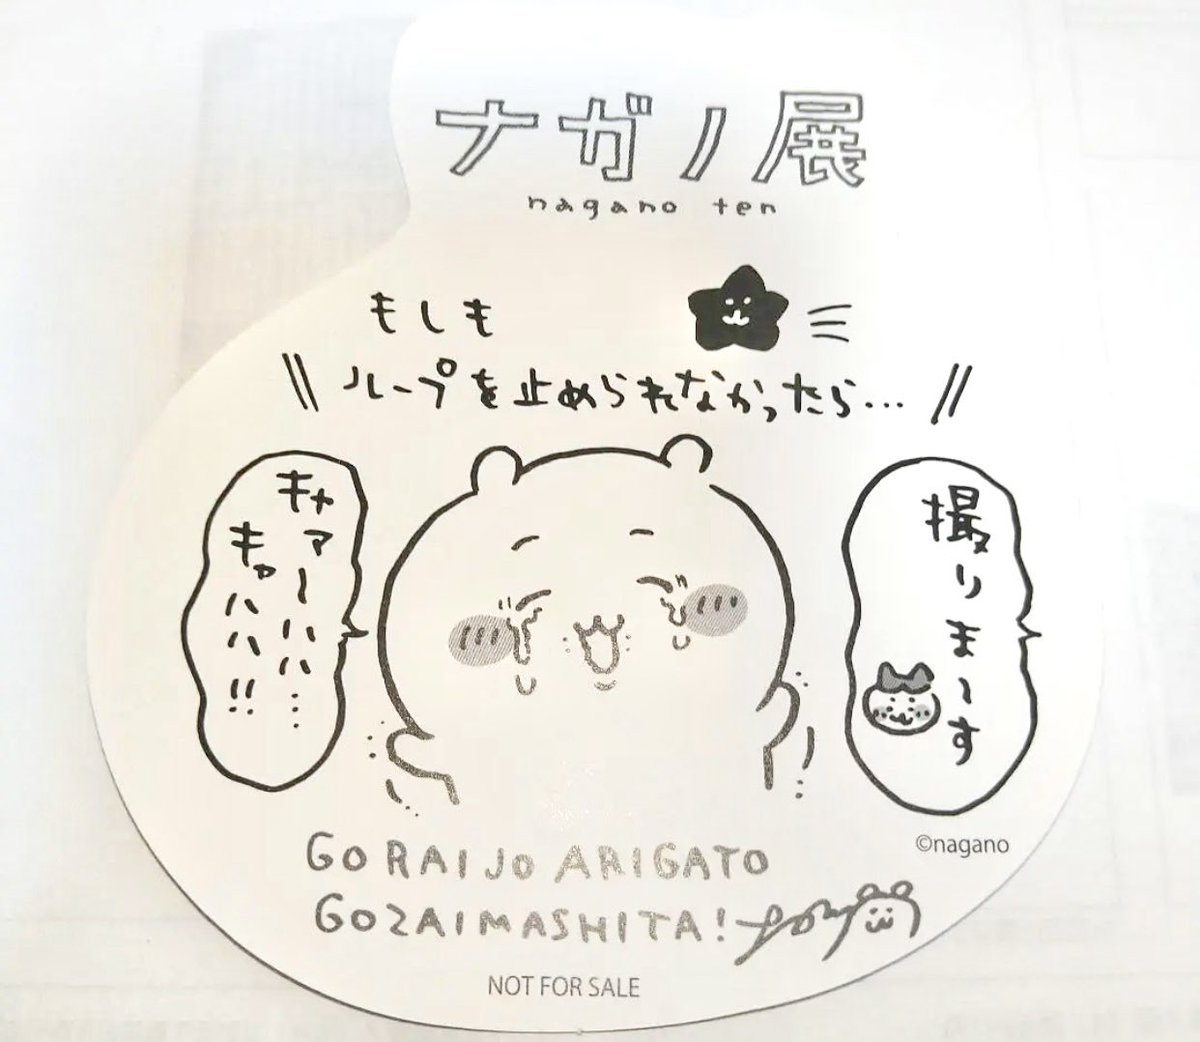 ナガノ展
nagano ten
もしも
ループを止められなかったら…
撮りま〜す
キャァーハハ…
キャハハハ!!
©nagano
GORAIJO ARIGATO
GOZAIMASHITA!
NOT FOR SALE